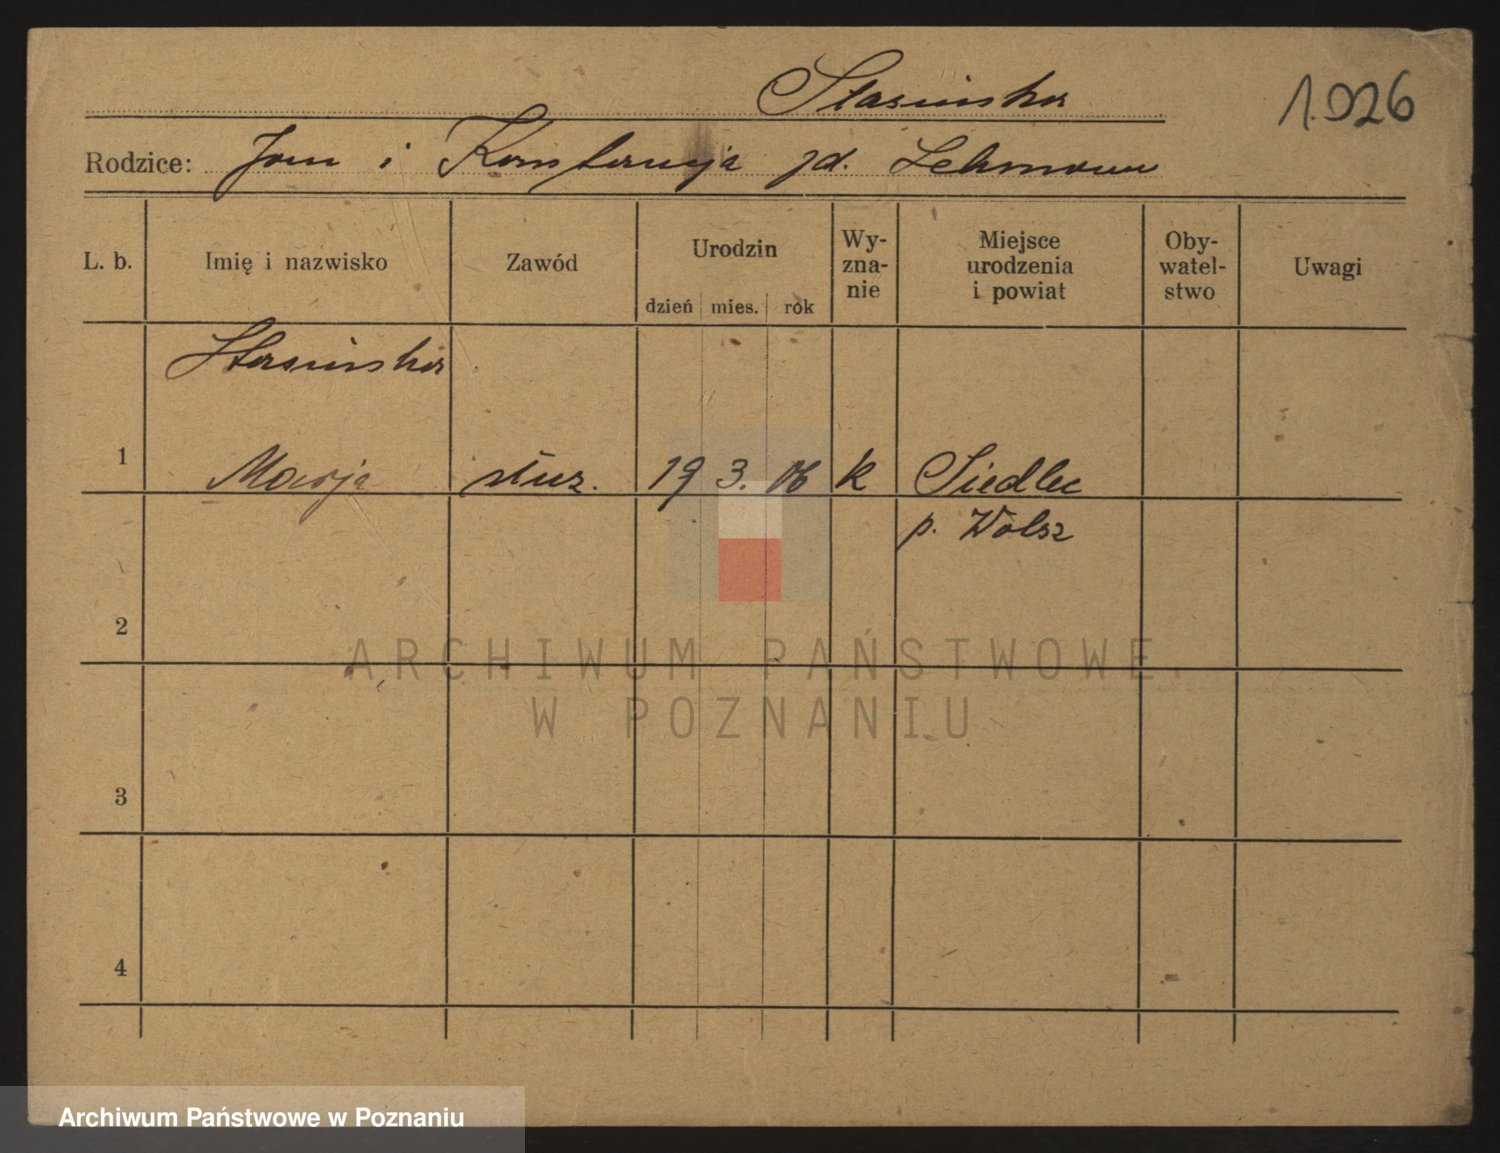 Stasińska 1.026
Rodzice: Jan i Konstancja zd. Lehmann
L. b. Imię i nazwisko Zawód Urodzin Wy-zna-nie Miejsce urodzenia i powiat Oby-watel-stwo Uwagi
dzień mies. rok
Stasińska
1 Marja służ. 19 3. 06 k Siedlec
p. Wolsz
2
ARCHIWUM PAŃSTWOWE
W POZNANIU
3
4
Archiwum Państwowe w Poznaniu